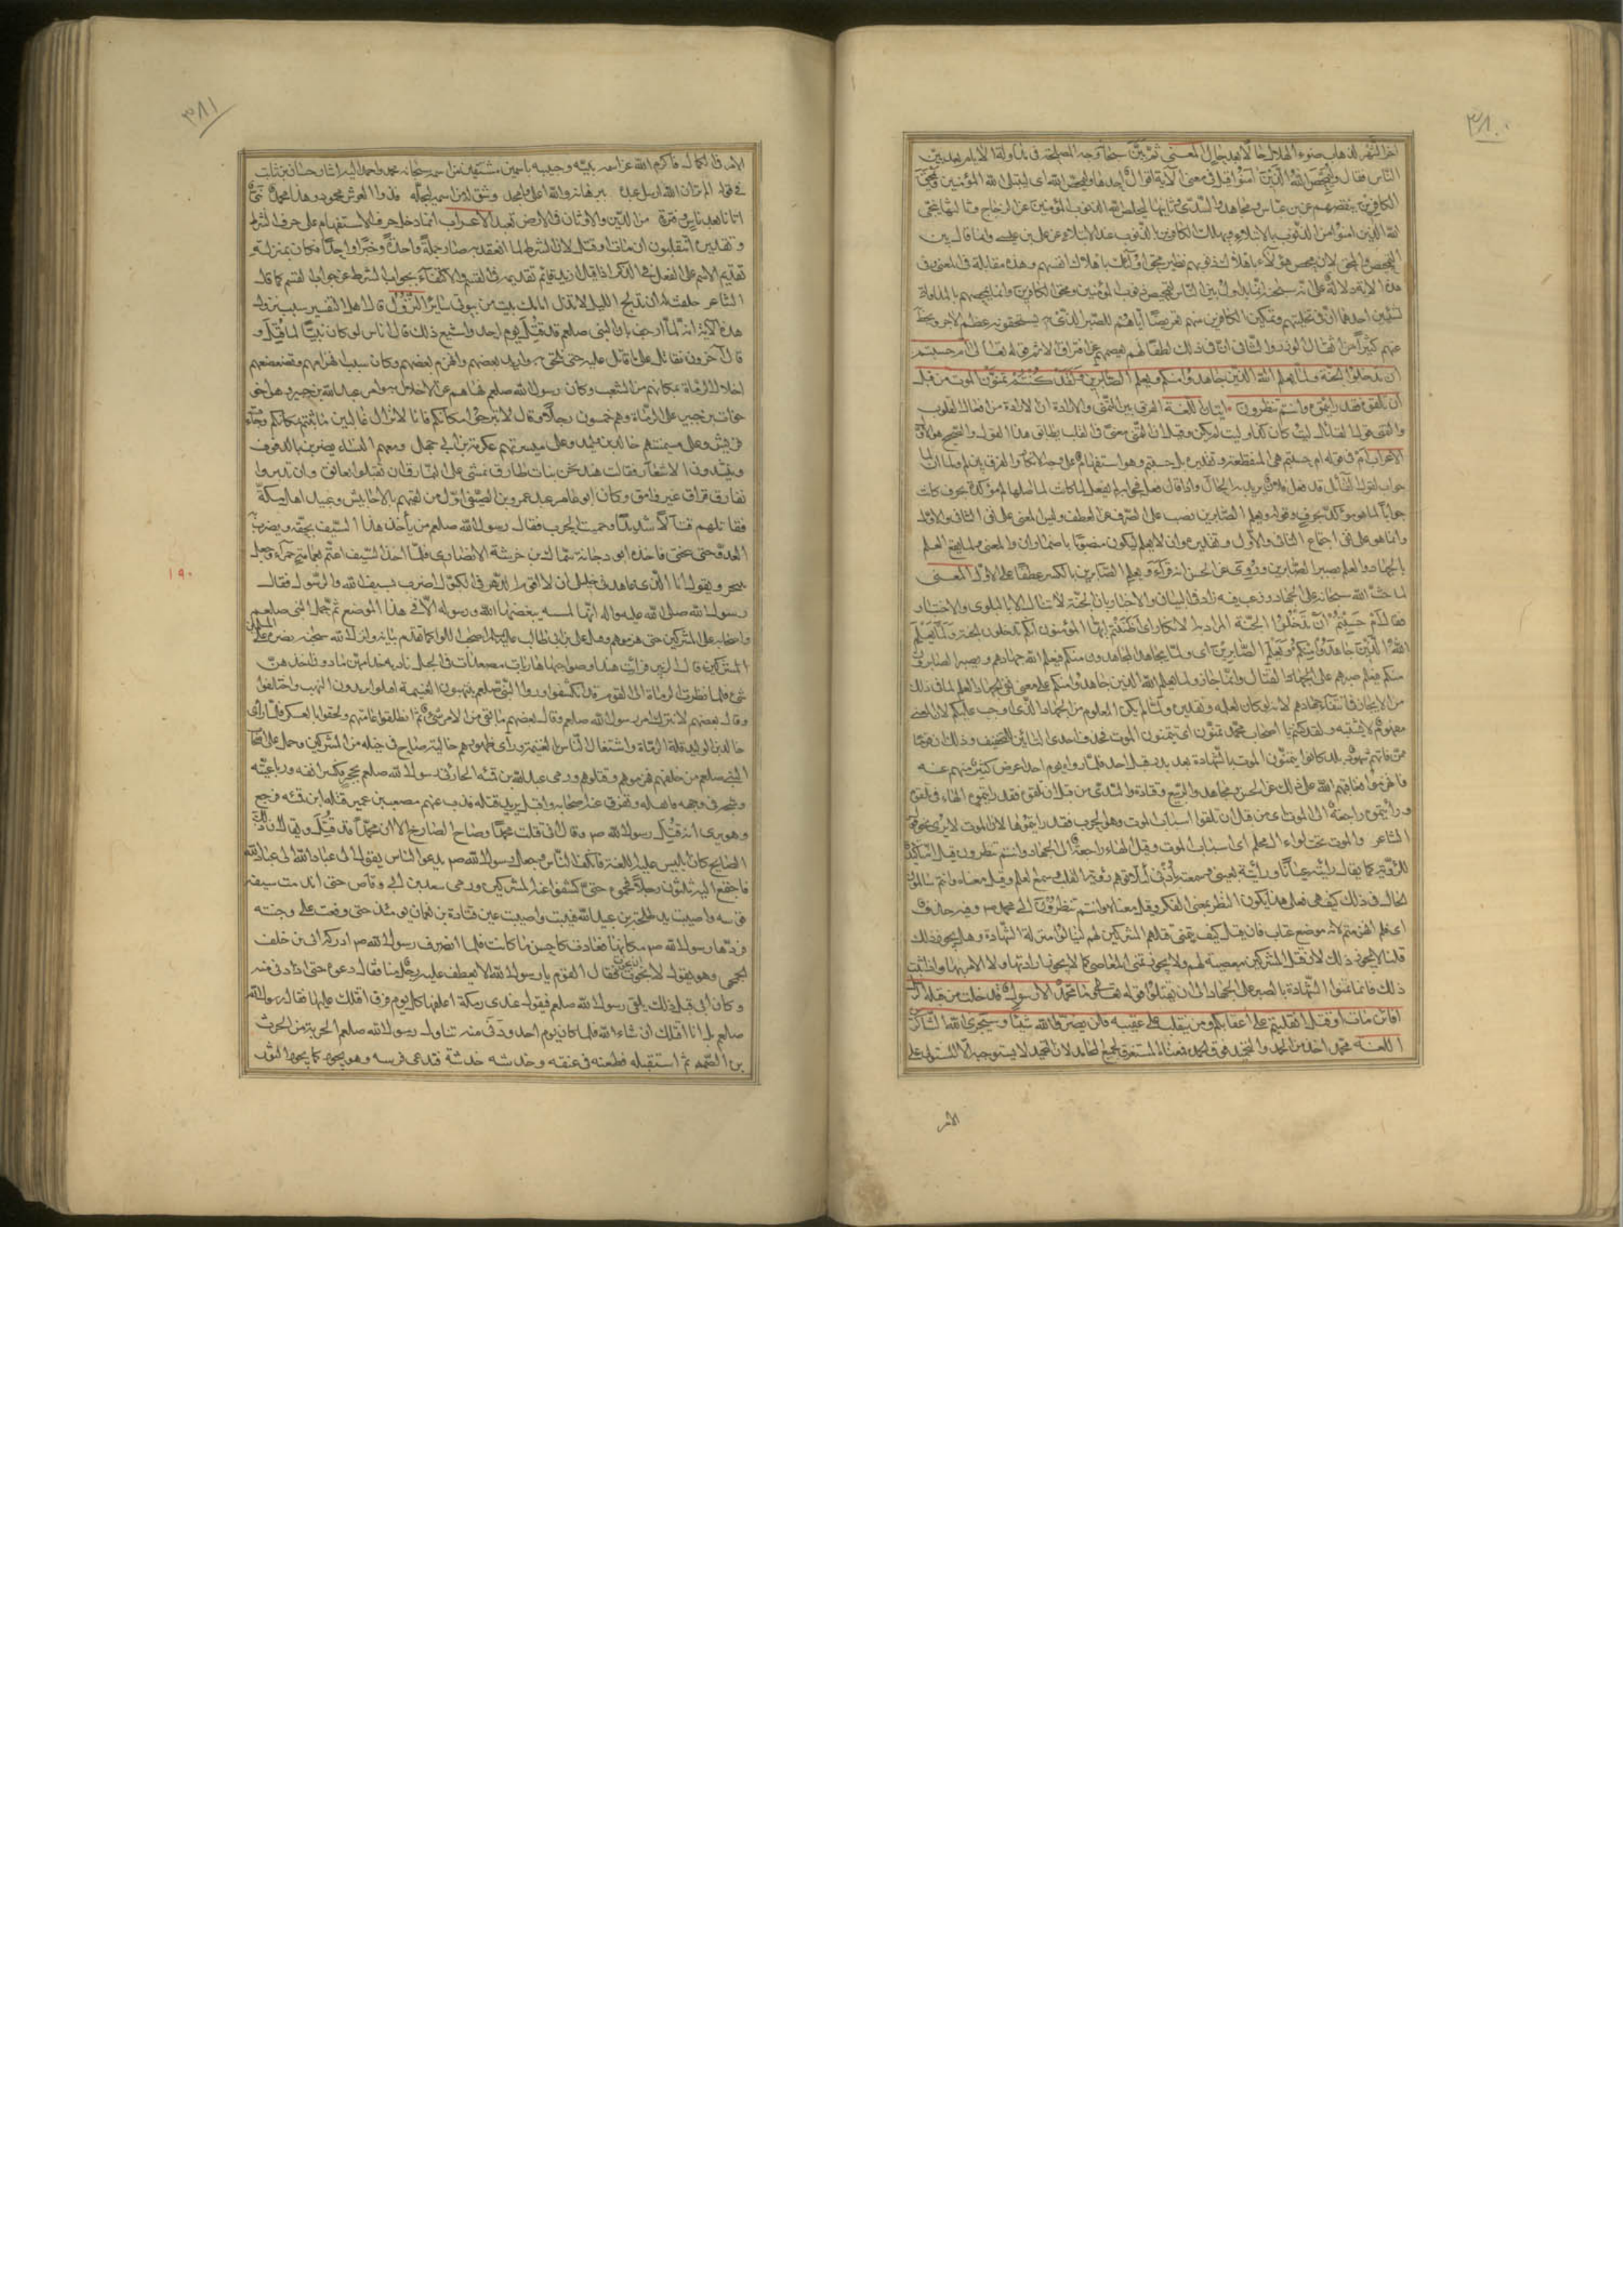 ٣٨٠
اخر الشهر لذهاب ضوء الهلال حالا بعد حال المعنى ثم بين سبحانه وجه المصلحة في مداولة الايام بين
الناس فقال وليمحص الله الذين آمنوا قيل في معنى الآية اقوال احدها وليمحص الله اى ليبتلى الله المؤمنين ويمحق
الكافرين ينقصهم عن بن عباس ومجاهد والسدى وثانيها ليخلص الله الذنوب المؤمنين عن الزجاج وثالثها ينجى
الله الذين امنوا من الذنوب بالابتلاء ويهلك الكافرين بالذنوب عند الابتلاء عن على بن عيسى وانما قال بين
التمحيص والمحق لان محص هؤلاء باهلاك ذنوبهم نظير محق اولئك باهلاك انفسهم وهذه مقابلة فى المعنى وفى
هذه الاية دلالة على انه سبحانه انما يداول بين الناس لتمحيص ذنوب المؤمنين ومحق الكافرين وانما يمحصهم بالمداولة
لشيئين احدهما ان فى تخليتهم وتمكين الكافرين منهم تعريضا اياهم للصبر الذى يستحقون به عظيم الاجر ويحط
عنهم كثيرا من الذنوب والثانى ان فى ذلك لطفا لهم يعصمهم عن اقتراف الاثم قوله تعالى ام حسبتم
ان تدخلوا الجنة ولما يعلم الله الذين جاهدوا منكم ويعلم الصابرين ولقد كنتم تمنون الموت من قبل
ان تلقوه فقد رايتموه وانتم تنظرون ايتان اللغة الفرق بين التمنى والارادة ان الارادة من افعال القلوب
والتمنى هو قول القائل ليت كان كذا وليت لم يكن وقيل ان التمنى معنى فى القلب يطابق هذا القول والصحيح هو الاول
الاعراب ام فى قوله ام حسبتم هى المنقطعة وتقديره بل حسبتم وهو استفهام على وجه الانكار والفرق بين لم ولما ان لما
جواب لقول القائل قد فعل فلان يريد به الحال واذا قال فعل فجوابه لم يفعل لما كانت لما اصلها لم مؤكدة بحرف كانت
جوابا لما هو مؤكد بحرف وقوله ويعلم الصابرين نصب على الصرف عن العطف وليس المعنى على نفى الثانى والاول
وانما هو على نفى اجتماع الثانى والاول وتقديره وان لا يعلم ليكون منصوبا باضمار ان والمعنى ولما يقع العلم
بالجهاد والعلم بصبر الصابرين وروى عن الحسن انه قرأ ويعلم الصابرين بالكسر عطفا على الاول المعنى
لما حث الله سبحانه على الجهاد ورغب فيه زاد فى البيان والاخبار بان الجنة لا تنال الا بالبلوى والاختبار
فقال ام حسبتم ان تدخلوا الجنة المراد به الانكار اى اظننتم ايها المؤمنون انكم تدخلون الجنة ولما يعلم
الله الذين جاهدوا منكم ويعلم الصابرين اى ولما يجاهد المجاهدون منكم فيعلم الله جهادهم ويصبر الصابرون
منكم فيعلم صبرهم على الجهاد والقتال وانما جاز ولما يعلم الله الذين جاهدوا منكم على معنى نفى الجهاد دون العلم لما فى ذلك
من الايجاز فى انتفاء جهادهم لانه لو كان لعلمه وتقديره ولما لم يكن المعلوم من الجهاد الذى اوجب عليكم لان المعنى
مفهوم لا يشتبه ولقد كنتم يا اصحاب محمد تمنون اى تتمنون الموت فحذف احدى التائين للتخفيف وذلك ان قوما
ممن فاتهم شهود بدر كانوا يتمنون الموت بالشهادة بعد بدر قبل احد فلما راوه يوم احد اعرض كثير منهم عنه
فانهزموا فعاتبهم الله على ذلك عن الحسن ومجاهد والربيع وقتادة والسدى من قبل ان تلقوه فقد رايتموه الهاء فى تلقوه
ورايتموه راجعة الى الموت اى من قبل ان تلقوا اسباب الموت وهو الحرب فقد رايتموها لان الموت لا يرى كقول
الشاعر والموت تحت لواء ال محلم اى اسباب الموت وقيل الهاء راجعة الى الجهاد وانتم تنظرون قيل انه تاكيد
للرؤية كما يقال رايته عيانا ورأيته بعينى وسمعته باذنى لئلا يتوهم رؤية القلب وسمع العلم وقيل معناه وانتم تتاملون
الحال فى ذلك كيف هى فعلى هذا يكون النظر بمعنى الفكر وقيل معناه وانتم تنظرون الى محمد ص وفيه حذف
اى فلم انهزمتم لانه موضع عتاب فان قيل كيف يتمنى قتلهم المشركين لهم لينالوا منزلة الشهادة وهل يجوز ذلك
قلنا لا يجوز ذلك لان قتل المشركين معصية لهم ولا يجوز تمنى المعاصى كما لا يجوز ارادتها ولا الامر بها واذا ثبت
ذلك فانما تمنوا الشهادة بالصبر على الجهاد الى ان يقتلوا قوله تعالى وما محمد الا رسول قد خلت من قبله الرسل
افائن مات او قتل انقلبتم على اعقابكم ومن ينقلب على عقبيه فلن يضر الله شيئا وسيجزى الله الشاكرين
اللغة محمد اخذ من الحمد والتحميد فوق الحمد فمعناه المستغرق لجميع المحامد لان التحميد لا يستوجبه الا المستولى على
الامر
٣٨١
الامر فى الكمال فاكرم الله عز اسمه نبيه وحبيبه باسمين مشتقين من اسمه سبحانه محمد واحمد واليه اشار حسان بن ثابت
فى قوله الم تر ان الله ارسل عبده ببرهانه والله اعلى وامجد وشق له من اسمه ليجله فذو العرش محمود وهذا محمد نبى
اتانا بعد ياس وفترة من الدين والاوثان فى الارض تعبد الاعراب انما دخل حرف الاستفهام على حرف الشرط
وتقديره اتنقلبون ان مات او قتل لان الشرط لما انعقد به صار جملة واحدة وخبرا واحدا فكان بمنزلة
تقديم الاسم على الفعل فى الذكر اذا قيل ازيد قام تقديمه فى القسم والاكتفاء بجواب الشرط عن جواب القسم كما قال
الشاعر حلفت له ان تدلج الليل لا تزل امامك بيت من بيوتى سائر النزول قال اهل التفسير سبب نزول
هذه الآية انه لما ارجف بان النبى صلعم قد قتل يوم احد واشيع ذلك قال اناس لو كان نبيا لما قتل و
قال آخرون نقاتل على ما قاتل عليه حتى نلحق به وارتد بعضهم وانهزم بعضهم وكان سبب انهزامهم وتضعضعهم
اخلال الرماة بمكانهم من الشعب وكان رسول الله صلعم نهاهم عن الاخلال به وامر عبد الله بن جبير وهو اخو
خوات بن جبير على الرماة وهم خمسون رجلا وقال لا تبرحوا مكانكم فانا لا نزال غالبين ما ثبتم مكانكم وجاءت
قريش وعلى ميمنتهم خالد بن الوليد وعلى ميسرتهم عكرمة بن ابى جهل ومعهم النساء يضربن بالدفوف
وينشدون الاشعار فقالت هند نحن بنات طارق نمشى على النمارق ان تقبلوا نعانق وان تدبروا
نفارق فراق غير وامق وكان ابو عامر عبد عمرو بن الصيفى اول من لقيهم بالاحابيش وعبيد اهل مكة
فقاتلهم قتالا شديدا وحميت الحرب فقال رسول الله صلعم من يأخذ هذا السيف بحقه ويضرب به
العدو حتى ينحنى فاخذه ابو دجانة سماك بن خرشة الانصارى فلما اخذ السيف اعتم بعمامة حمراء وجعل
١٩٠
يتبختر ويقول انا الذى عاهدنى خليلى ان لا اقوم الدهر فى الكبول اضرب بسيف الله والرسول فقال
رسول الله صلى الله عليه واله انها لمشية يبغضها الله ورسوله الا فى هذا الموضع ثم حمل النبى صلعم
واصحابه على المشركين حتى هزموهم وقتل على بن ابى طالب عليه السلام اصحاب اللواء كما تقدم بيانه وانزل الله سبحانه نصره على المسلمين
المشركين قال الزبير فرأيت هندا وصواحبها هاربات مصعدات فى الجبل نادية خدامهن ما دون اخذهن
شئ فلما نظرت الرماة الى القوم قد انكشفوا وراوا النبى صلعم ينتهبون الغنيمة اقبلوا يريدون النهب واختلفوا
وقال بعضهم لا نترك امر رسول الله صلعم وقال بعضهم ما بقى من الامر شئ ثم انطلقوا عامتهم ولحقوا بالعسكر فلما رأى
خالد بن الوليد قلة الرماة واشتغال الناس بالغنيمة ورأى ظهورهم خالية صاح فى خيله من المشركين وحمل على اصحاب
النبى صلعم من خلفهم فهزموهم وقتلوهم ورمى عبد الله بن قمئة الحارثى رسول الله صلعم بحجر فكسر انفه ورباعيته
وشجه فى وجهه فاثقله وتفرق عنه اصحابه واقبل يريد قتله فذب عنهم مصعب بن عمير قتله ابن قمئة فرجع
وهو يرى انه قتل رسول الله ص وقال انى قتلت محمدا وصاح الصارخ الا ان محمدا قد قتل ويقال ان ذلك
الصايح كان ابليس عليه اللعنة فانكفأ الناس وجعل رسول الله ص يدعو الناس يقول الى عباد الله الى عباد الله
فاجتمع اليه ثلثون رجلا فحموه حتى كشفوا عنه المشركين ورمى سعد بن ابى وقاص حتى اندقت سية
قوسه واصيبت يد طلحة بن عبيد الله فيبست واصيبت عين قتادة بن نعمان يومئذ حتى وقعت على وجنته
فردها رسول الله ص مكانها فعادت كاحسن ما كانت فلما انصرف رسول الله ص ادركه ابى بن خلف
الجمحى وهو يقول لا نجوت ان نجوت فقال القوم يا رسول الله الا يعطف عليه رجل منا فقال دعوه حتى اذا دنى منه
وكان ابى قبل ذلك يلقى رسول الله صلعم فيقول عندى رمكة اعلفها كل يوم فرق اقتلك عليها فقال رسول الله
صلعم بل انا اقتلك ان شاء الله فلما كان يوم احد ودنى منه تناول رسول الله صلعم الحربة من الحرث
بن الصمة ثم استقبله فطعنه فى عنقه وخدشه خدشة فتدهدى عن فرسه وهو يخور كما يخور الثور